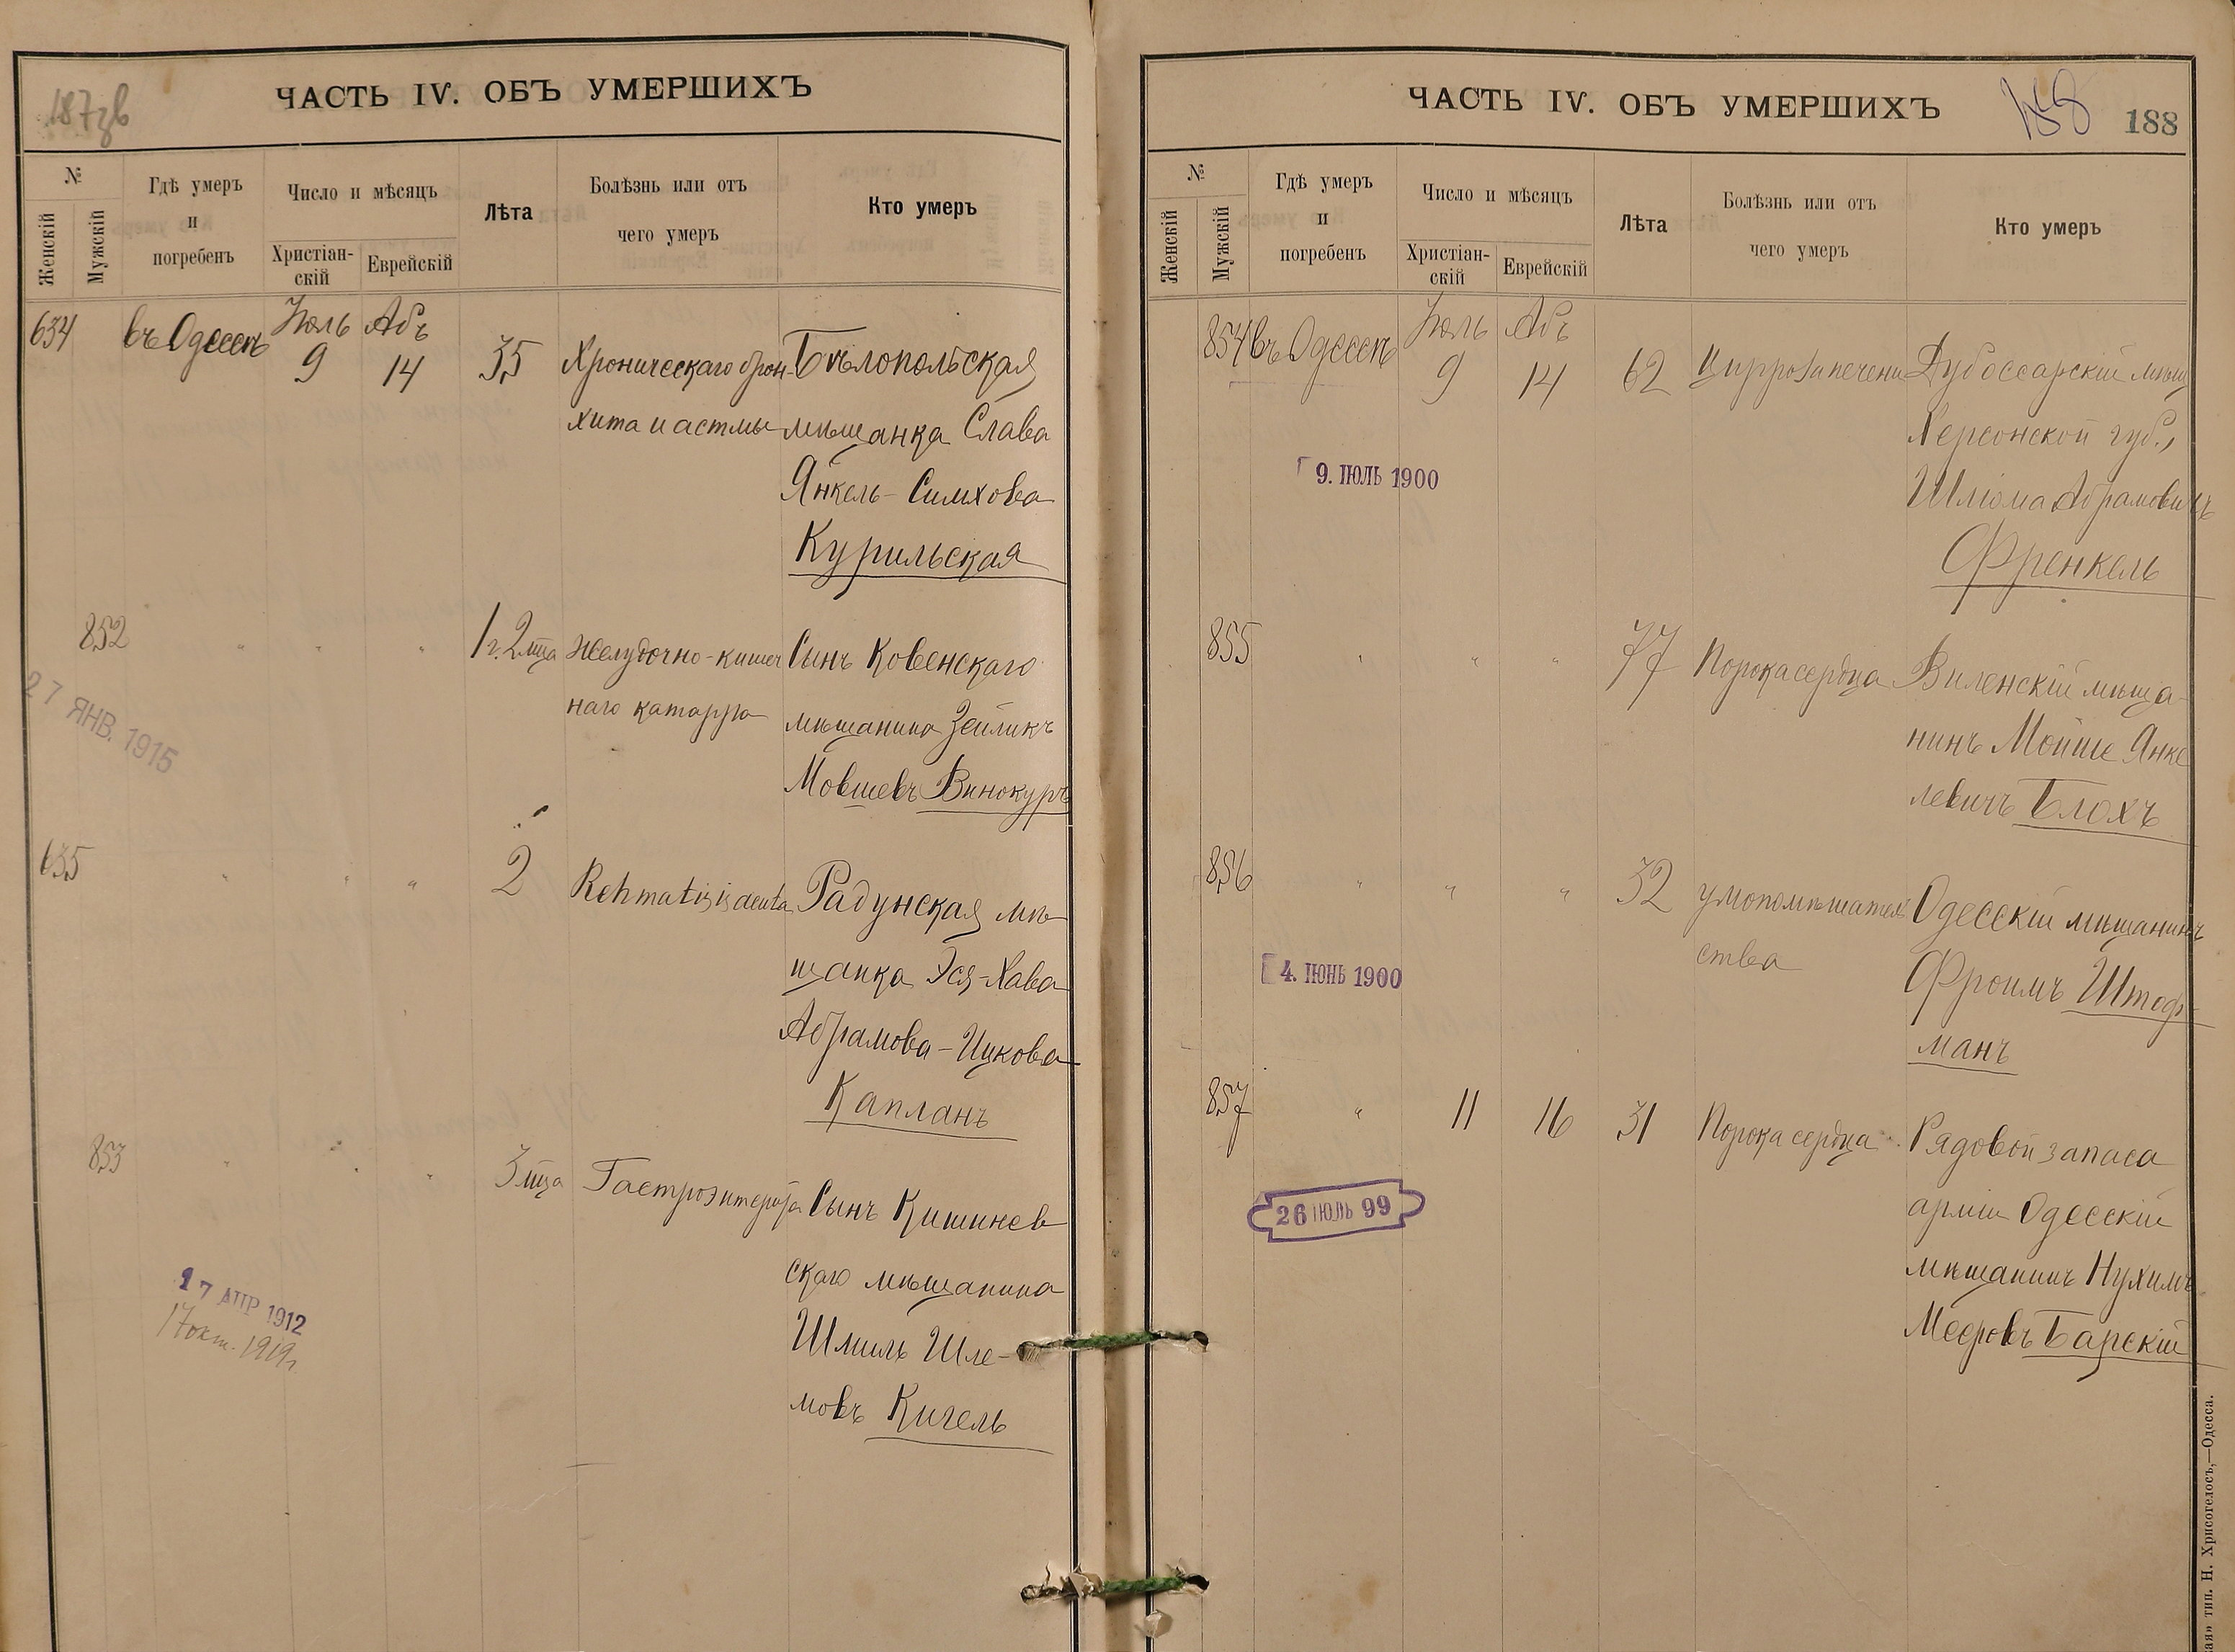 187зв
ЧАСТЬ IV. ОБЪ УМЕРШИХЪ
№
Женскій
Мужскій
Гдѣ умеръ
и
погребенъ
Число и мѣсяцъ
Христіан-
скій
Еврейскій
Лѣта
Болѣзнь или отъ
чего умеръ
Кто умеръ
634 въ Одессѣ Іюль 9 Абъ 14 35 Хроническаго брон- Бѣлопольская
хита и астмы мѣщанка Слава
Янкель-Симхова
Курильская
852 " " " 1 г. 2 мца Желудочно-кишеч Сынъ Ковенскаго
наго катарра мѣщанина Зейликъ
Мовшевъ Винокуръ
27 ЯНВ. 1915
635 " " " 2 Rehmatisis Радунская мѣ
щанка Эся-Хава
Абрамова-Ицкова
Капланъ
853 " " " 3 мца Гастроэнтерита Сынъ Кишинев
скаго мѣщанина
Шмиль Шле-
мовъ Кигель
17 АПР 1912
17 окт. 1919г
ЧАСТЬ IV. ОБЪ УМЕРШИХЪ
188
188
№
Женскій
Мужскій
Гдѣ умеръ
и
погребенъ
Число и мѣсяцъ
Христіан-
скій
Еврейскій
Лѣта
Болѣзнь или отъ
чего умеръ
Кто умеръ
854 въ Одессѣ Іюль 9 Абъ 14 62 Цирроза печени Дубоссарскій мѣщ
Херсонской губ.,
Шлiома Абрамовичъ
Френкель
9. ІЮЛЬ 1900
855 " " " 77 Порока сердца Виленскій мѣща-
нинъ Мойше Янке
левичъ Блохъ
856 " " " 32 умопомѣшатель Одесскій мѣщанинъ
ства Фроимъ Штоф-
манъ
4. ІЮНЬ 1900
857 " 11 16 31 Порока сердца Рядовой запаса
арміи Одесскій
мѣщанинъ Нухимъ
Меeровъ Барскій
26 ІЮЛЬ 99
тип. Н. Хрисогелосъ,—Одесса.